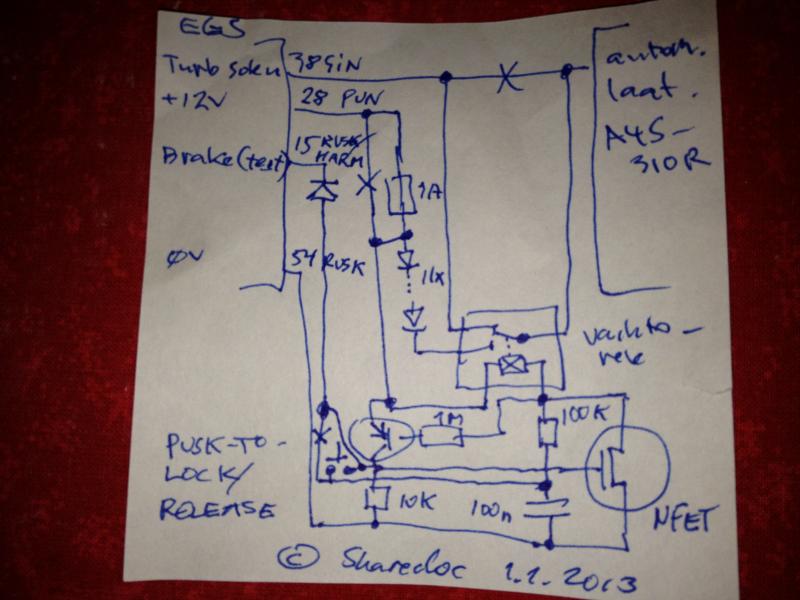 EGS
Turb solen 38 SIN
+12V 28 PUN
autom.
laat.
A4S-
310R
15 RUSK
HARM
Brake (test)
1A
ØV 54 RUSK
11x
vaihto-
rele
1M
100K
PUSK-TO-
LOCK/
RELEASE
10K
100n
NFET
© Sharedoc 1.1.2013